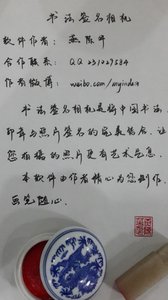 书法签名相机
软件作者：燕陈华
合作联系：QQ231029584
作者微博：weibo.com/myindex
书法签名相机是将中国书法、
印章与照片签名的完美结合，让
您拍摄的照片更有艺术气息。
本软件由作者精心为您制作，
画笔随心。